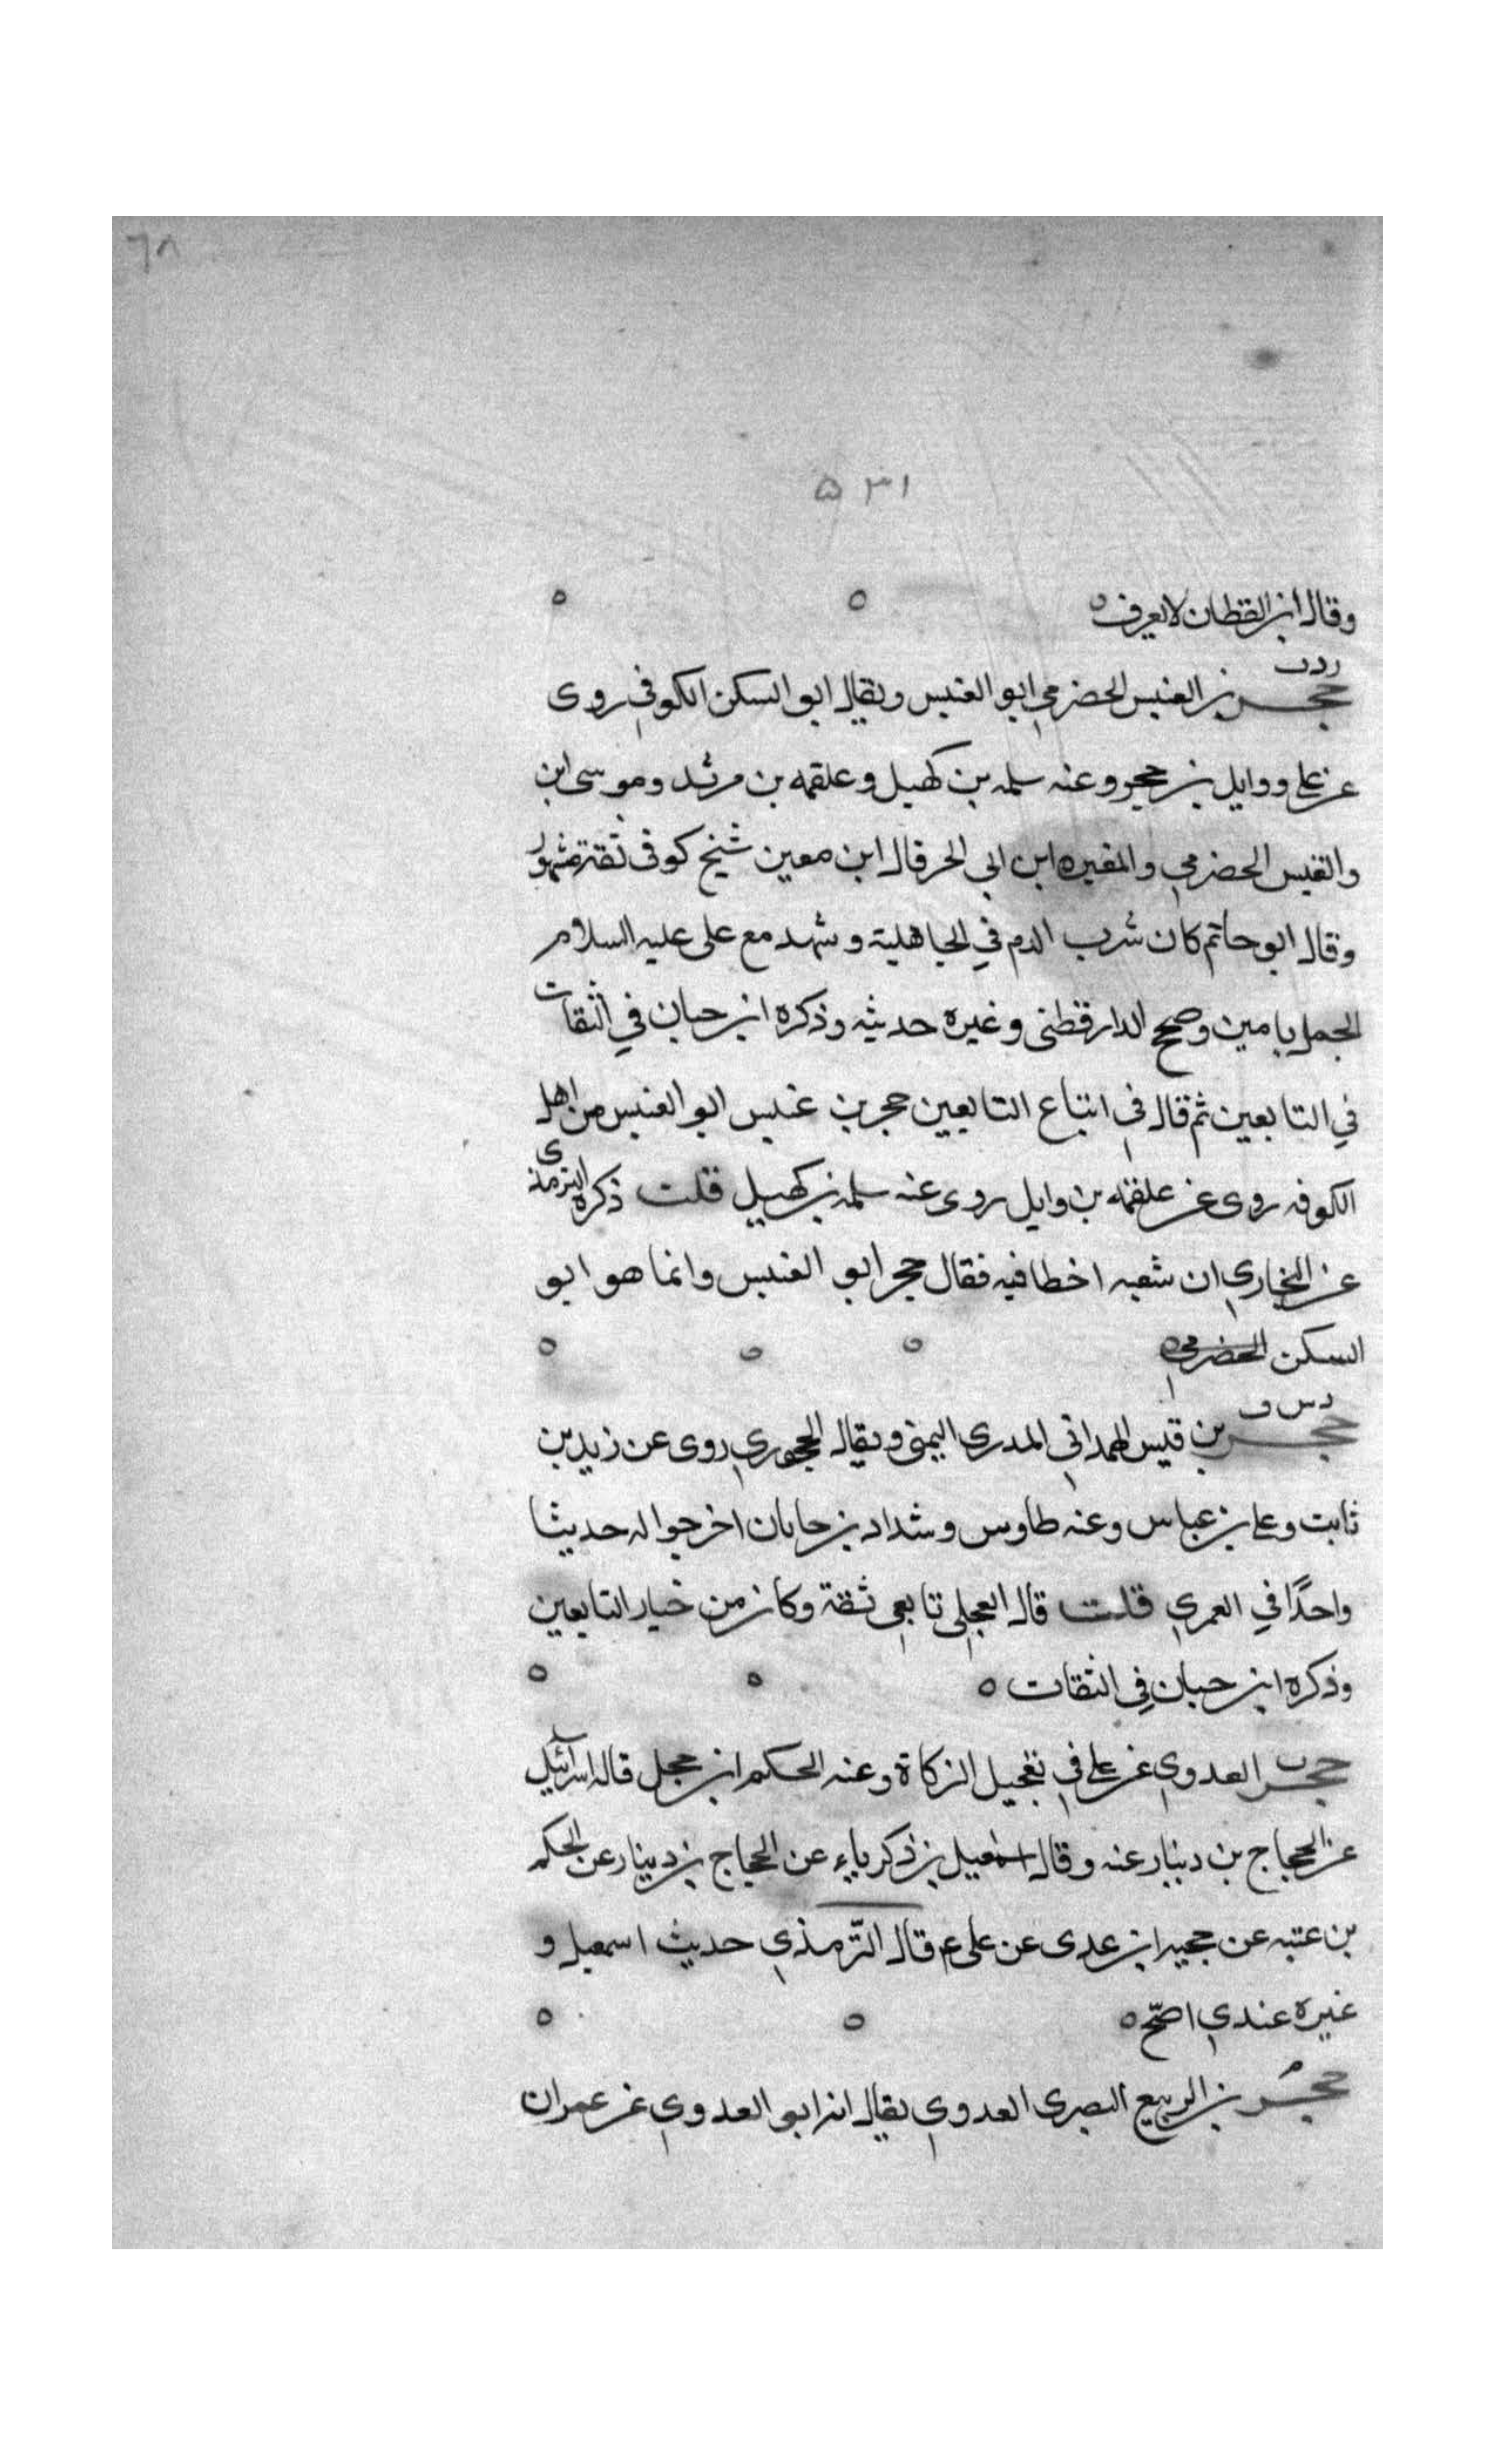 ٦٨
٥٣١
وقال ابن القطان لا يعرف ه ه ه
ر د ت
حجر بن العنبس الحضرمي ابو العنبس ويقال ابو السكن الكوفي روى
عن علي ووايل بن حجر وعنه سلمه بن كهيل وعلقمه بن مرثد وموسى ابن
والقيس الحضرمي والمغيره ابن ابي الحر قال ابن معين شيخ كوفي ثقة مشهور
وقال ابو حاتم كان شرب الدم في الجاهلية وشهد مع علي عليه السلام
الجمل يامين وصحح الدارقطنى وغيره حديثه وذكره ابن حبان في الثقات
في التابعين ثم قال في اتباع التابعين حجر بن عنبس ابو العنبس من اهل
الكوفه روى عن علقمه بن وايل روى عنه سلمه بن كهيل قلت ذكره الترمذى
عن البخاري ان شعبه اخطا فيه فقال حجر ابو العنبس وانما هو ابو
السكن الحضرمي ه ه ه ه
د س ق
حجر بن قيس الهمداني المدرى اليمنى ويقال الحجوري روى عن زيد بن
ثابت وعلي بن عباس وعنه طاوس وشداد بن جابان اخرجوا له حديثا
واحدًا في العمري قلت قال العجلي تابعي ثقة وكان من خيار التابعين
وذكره ابن حبان في الثقات ه ه ه
ت
حجر العدوي عن علي في تعجيل الزكاة وعنه الحكم ابن حجل قاله اسرآئيل
عن الحجاج بن دينار عنه وقال اسمعيل بن ذكرياء عن الحجاج بن دينار عن الحكم
بن عتبه عن حجير ابن عدى عن علي ع قال الترّمذي حديث اسمعيل و
غيره عندي اصحّ ه ه ه
م
حجُير بن الربيع البصرى العدوي يقال انه ابو العدوي عن عمران